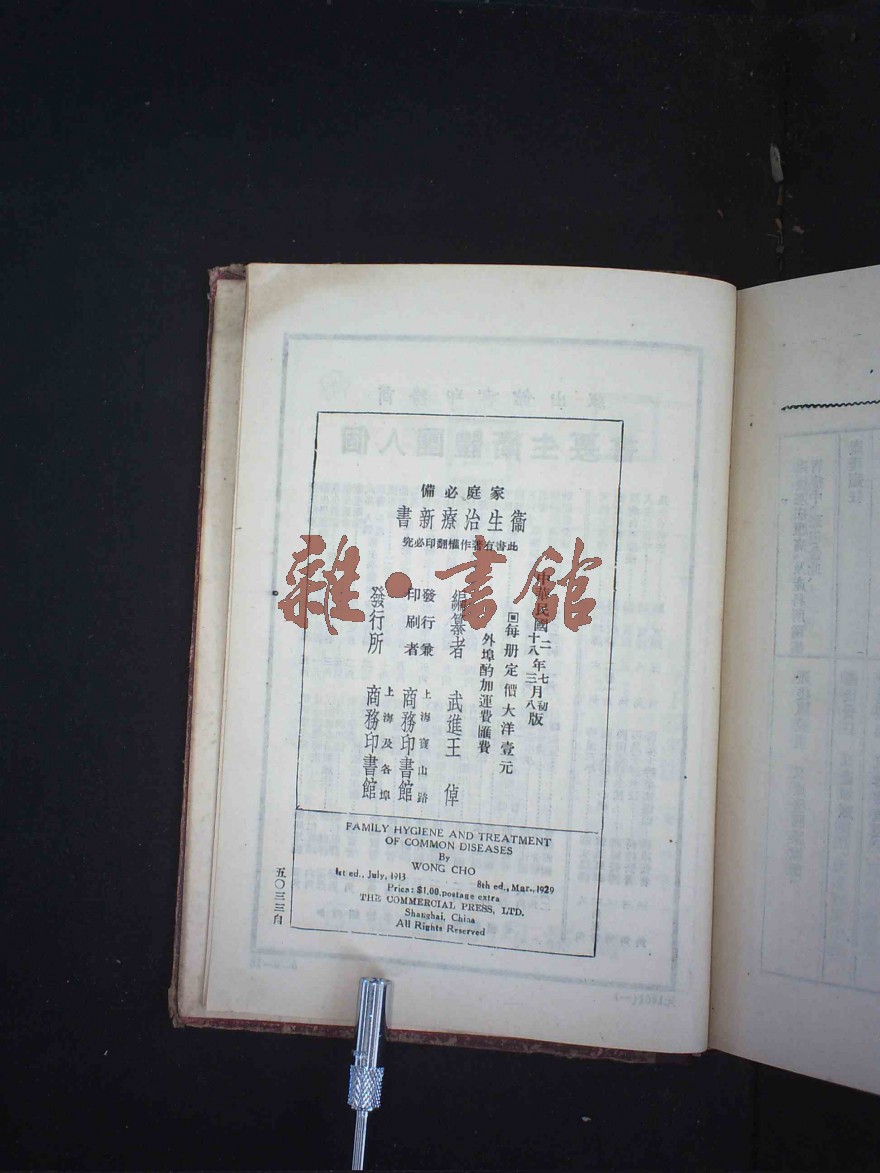 家庭必備
衞生治療新書
此書有著作權翻印必究
中華民國二年七月初版
十八年三月八版
回每册定價大洋壹元
外埠酌加運費匯費
編纂者 武進王倬
發行兼印刷者 上海寶山路 商務印書館
發行所 上海及各埠 商務印書館
FAMILY HYGIENE AND TREATMENT
OF COMMON DISEASES
By
WONG CHO
1st ed., July, 1913 8th ed., Mar., 1929
Price: $1.00, postage extra
THE COMMERCIAL PRESS, LTD.
Shanghai, China
All Rights Reserved
五〇三三自
雜·書館